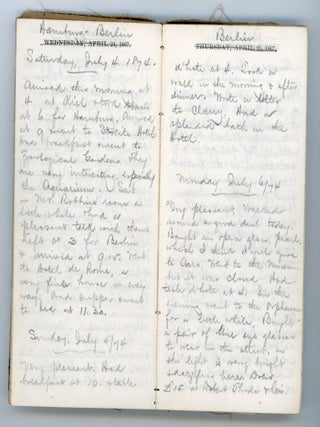 Hamburg - Berlin
WEDNESDAY, APRIL 24, 1867.
Saturday, July 4, 1874.
Arrived this morning at
4. at Kiel & took train
at 6 for Hamburg. Arrived
at 9 went to Hotel
had breakfast & went to
Zoological Gardens. They
are very interesting especially
the Aquarium. Sat
in Mr. Robbins rooms a
little while & had a
pleasant talk with them
left at 2 for Berlin
& arrived at 9.05. Went
to Hotel de Rome, a
very fine house in every
way. Had supper & went
to bed at 11.30.
Sunday, July 5/74
Very pleasant. Had
breakfast at 10. table
Berlin
THURSDAY, APRIL 25, 1867.
d'hote at 4. Took a
walk in the morning & after
dinner. Wrote a letter
to Clairy. Had a
splendid bath in the
Hotel.
Monday July 6/74
Very pleasant. Walked
around a good deal today.
Bought an opera glass, pearl,
which I think I will give
to Carr. Went to the Museum
but it was closed. Had
table d'hote at 4. In the
evening went to the Orpheum
for a little while. Bought
a pair of blue eye glasses
to wear in the street, as
the light is very bright
& dazzling here. Drew
£15 at Robert & Co's.